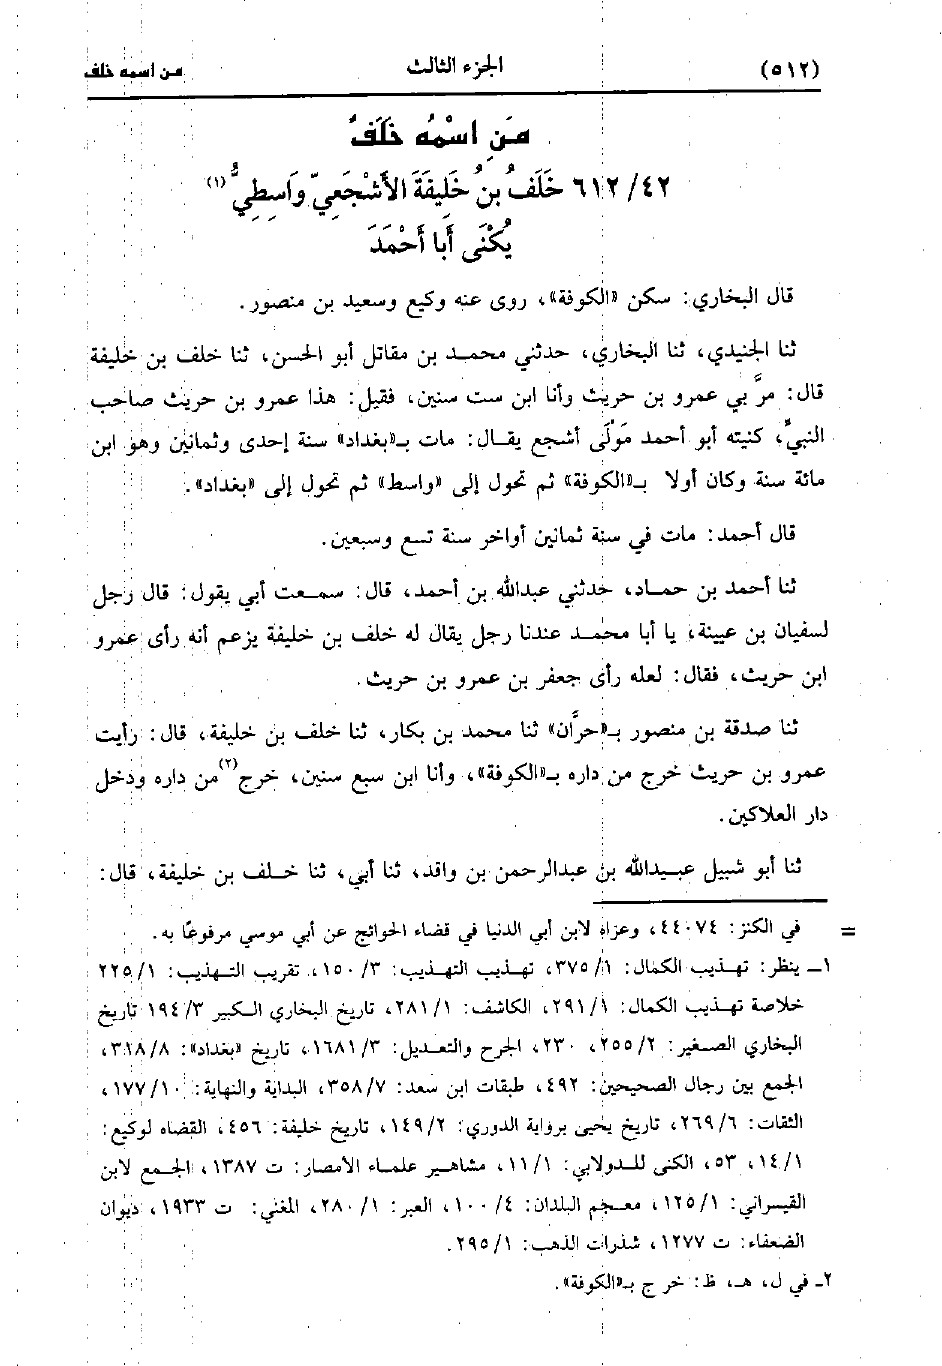 (٥١٢) الجزء الثالث من اسمه خلف
مَنِ اسْمُهُ خَلَفٌ
٦١٢/٤٢ خَلَفُ بنُ خَلِيفَةَ الأَشْجَعِيّ وَاسِطِيٌّ (١)
يُكْنَى أَبا أَحْمَدَ
قال البخاري: سكن «الكوفة»، روى عنه وكيع وسعيد بن منصور.
ثنا الجنيدي، ثنا البخاري، حدثني محمد بن مقاتل أبو الحسن، ثنا خلف بن خليفة
قال: مرَّ بي عمرو بن حريث وأنا ابن ست سنين، فقيل: هذا عمرو بن حريث صاحب
النبيِّ، كنيته أبو أحمد مَوْلَى أشجع يقال: مات بـ«بغداد» سنة إحدى وثمانين وهو ابن
مائة سنة وكان أولا بـ«الكوفة» ثم تحول إلى «واسط» ثم تحول إلى «بغداد».
قال أحمد: مات في سنة ثمانين أواخر سنة تسع وسبعين.
ثنا أحمد بن حماد، حدثني عبدالله بن أحمد، قال: سمعت أبي يقول: قال رجل
لسفيان بن عيينة، يا أبا محمد عندنا رجل يقال له خلف بن خليفة يزعم أنه رأى عمرو
ابن حريث، فقال: لعله رأى جعفر بن عمرو بن حريث.
ثنا صدقة بن منصور بـ«حرَّان» ثنا محمد بن بكار، ثنا خلف بن خليفة، قال: رأيت
عمرو بن حريث خرج من داره بـ«الكوفة»، وأنا ابن سبع سنين، خرج(٢) من داره ودخل
دار العلاكين.
ثنا أبو شبيل عبيدالله بن عبدالرحمن بن واقد، ثنا أبي، ثنا خلف بن خليفة، قال:
= في الكنز: ٤٤٠٧٤، وعزاه لابن أبي الدنيا في قضاء الحوائج عن أبي موسي مرفوعًا به.
١ـ ينظر: تهذيب الكمال: ٣٧٥/١، تهذيب التهذيب: ١٥٠/٣، تقريب التهذيب: ٢٢٥/١
خلاصة تهذيب الكمال: ٢٩١/١، الكاشف: ٢٨١/١، تاريخ البخاري الكبير ١٩٤/٣ تاريخ
البخاري الصغير: ٢٥٥/٢، ٢٣٠، الجرح والتعديل: ١٦٨١/٣، تاريخ «بغداد»: ٣١٨/٨،
الجمع بين رجال الصحيحين: ٤٩٢، طبقات ابن سعد: ٣٥٨/٧، البداية والنهاية: ١٧٧/١٠،
الثقات: ٢٦٩/٦، تاريخ يحيى برواية الدوري: ١٤٩/٢، تاريخ خليفة: ٤٥٦، القضاه لوكيع:
١٤/١، ٥٣، الكنى للدولابي: ١١/١، مشاهير علماء الأمصار: ت ١٣٨٧، الجمع لابن
القيسراني: ١٢٥/١، معجم البلدان: ١٠٠/٤، العبر: ٢٨٠/١، المغني: ت ١٩٣٣، ديوان
الضعفاء: ت ١٢٧٧، شذرات الذهب: ٢٩٥/١.
٢ـ في ل، هـ، ظ: خرج بـ«الكوفة».